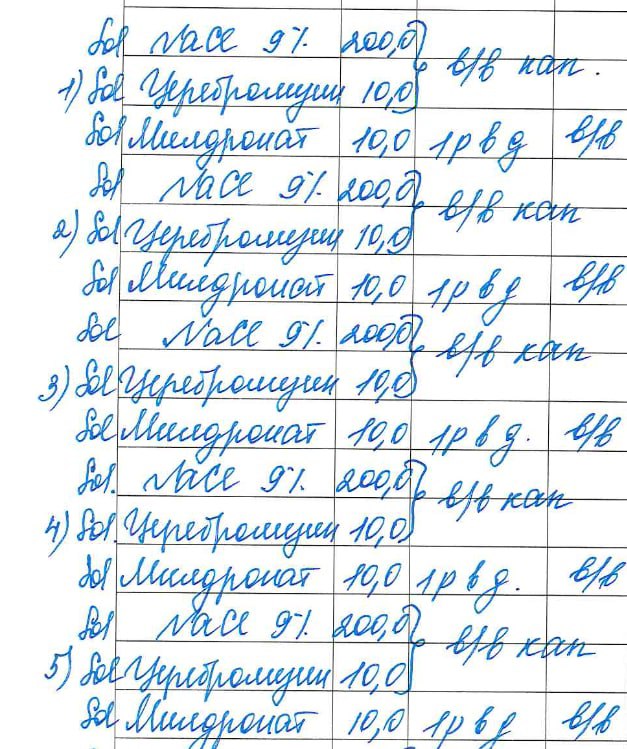 Sol NaCl 9% 200,0 } в/в кап.
1) Sol Церебромузин 10,0
Sol Милдронат 10,0 1р в д в/в
Sol NaCl 9% 200,0 } в/в кап
2) Sol Церебромузин 10,0
Sol Милдронат 10,0 1р в д в/в
Sol NaCl 9% 200,0 } в/в кап
3) Sol Церебромузин 10,0
Sol Милдронат 10,0 1р в д. в/в
Sol. NaCl 9% 200,0 } в/в кап
4) Sol. Церебромузин 10,0
Sol Милдронат 10,0 1р в д. в/в
Sol NaCl 9% 200,0 } в/в кап
5) Sol Церебромузин 10,0
Sol Милдронат 10,0 1р в д в/в